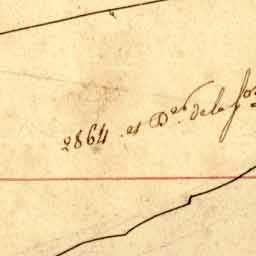 2864 es Des de la